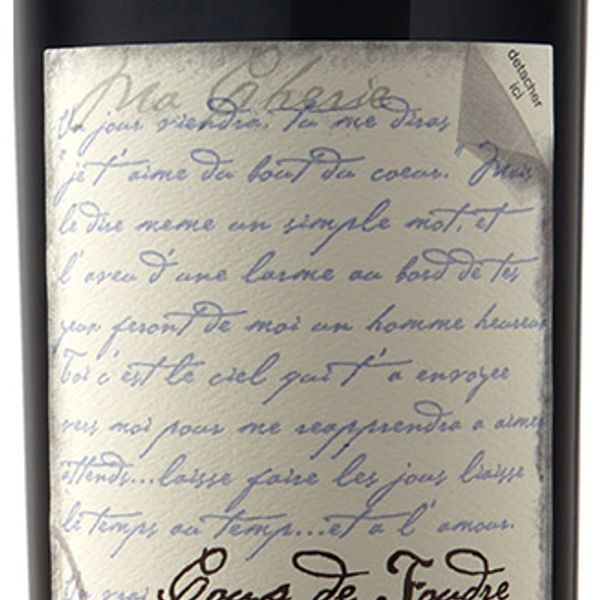 Ma Cherie
detacher
ici
Un jour viendra, tu me diras
"je t'aime du bout du coeur." Mais
le dire meme un simple mot, et
l'aveu d'une larme au bord de tes
yeux feront de moi un homme heureux
Toi c'est le ciel qui t'a envoyee
vers moi pour me reapprendre a aimer
attends...laisse faire les jours laisse
le temps au temps...et a l'amour.
Un vrai
Coups de Foudre